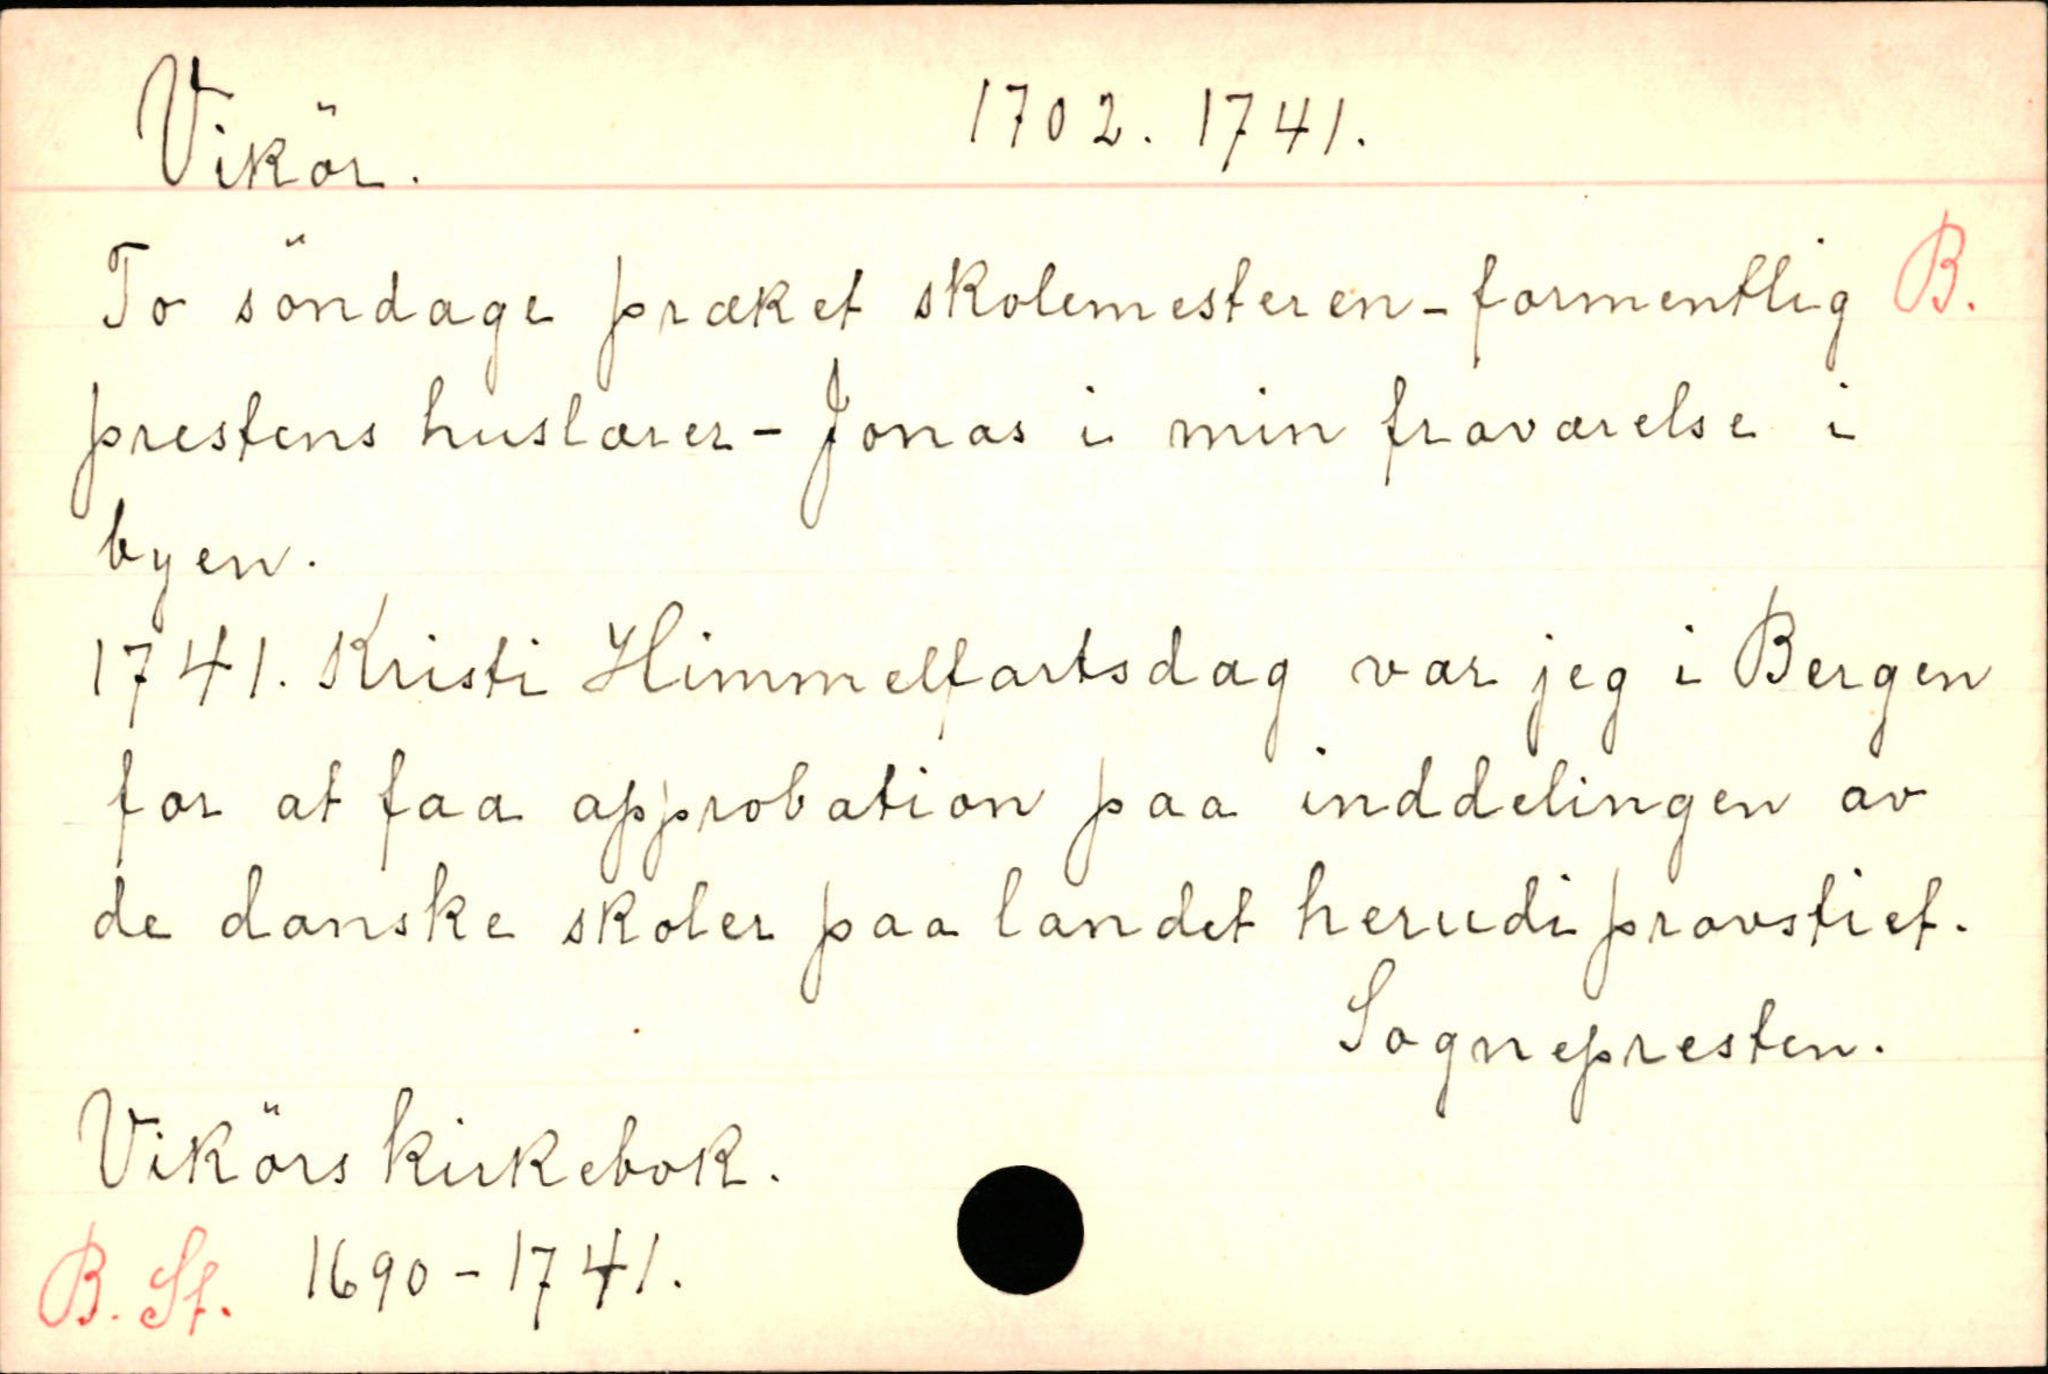 Vikör. 1702. 1741.
To söndage præket skolemesteren - formentlig B.
prestens huslærer - Jonas i min fraværelse i
byen.
1741. Kristi Himmelfartsdag var jeg i Bergen
for at faa approbation paa inddelingen av
de danske skoler paa landet herudi provstiet.
Sognepresten.
Vikörs kirkebok.
B. St. 1690 - 1741.